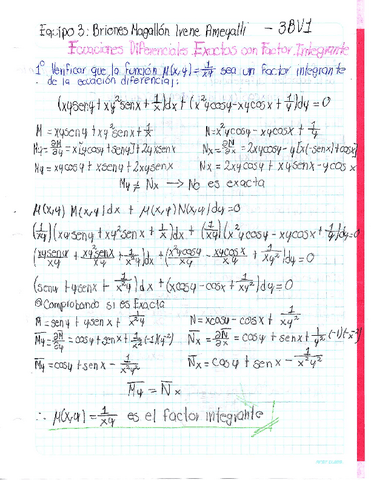 Equipo 3: Briones Magallón Irene Ameyalli - 3BV1
Ecuaciones Diferenciales Exactas con Factor Integrante
1° Verificar que la función M(x,y) = 1/xy sea un factor integrante
de la ecuación diferencial:
(xyseny + xy²senx + 1/x)dx + (x²ycosy - xycosx + 1/y)dy = 0
M = xyseny + xy²senx + 1/x   N = x²ycosy - xycosx + 1/y
My = ∂M/∂y = x[ycosy + seny] + 2xysenx   Nx = ∂N/∂x = 2xycosy - y[x(-senx) + cosx]
My = xycosy + xseny + 2xysenx   Nx = 2xycosy + xysenx - ycosx
My ≠ Nx → No es exacta
μ(x,y) M(x,y)dx + μ(x,y) N(x,y)dy = 0
(1/xy)(xyseny + xy²senx + 1/x)dx + (1/xy)(x²ycosy - xycosx + 1/y)dy = 0
(xyseny/xy + xy²senx/xy + 1/x/xy)dx + (x²ycosy/xy - xycosx/xy + 1/y/xy)dy = 0
(seny + ysenx + 1/x²y)dx + (xcosy - cosx + 1/xy²)dy = 0
Comprobando si es Exacta
M = seny + ysenx + 1/x²y   N = xcosy - cosx + 1/xy²
My = ∂M/∂y = cosy + senx + 1/x²(-1)(y⁻²)   Nx = ∂N/∂x = cosy + senx + 1/y²(-1)(x⁻²)
My = cosy + senx - 1/x²y²   Nx = cosy + senx - 1/x²y²
My = Nx
∴ μ(x,y) = 1/xy es el factor integrante